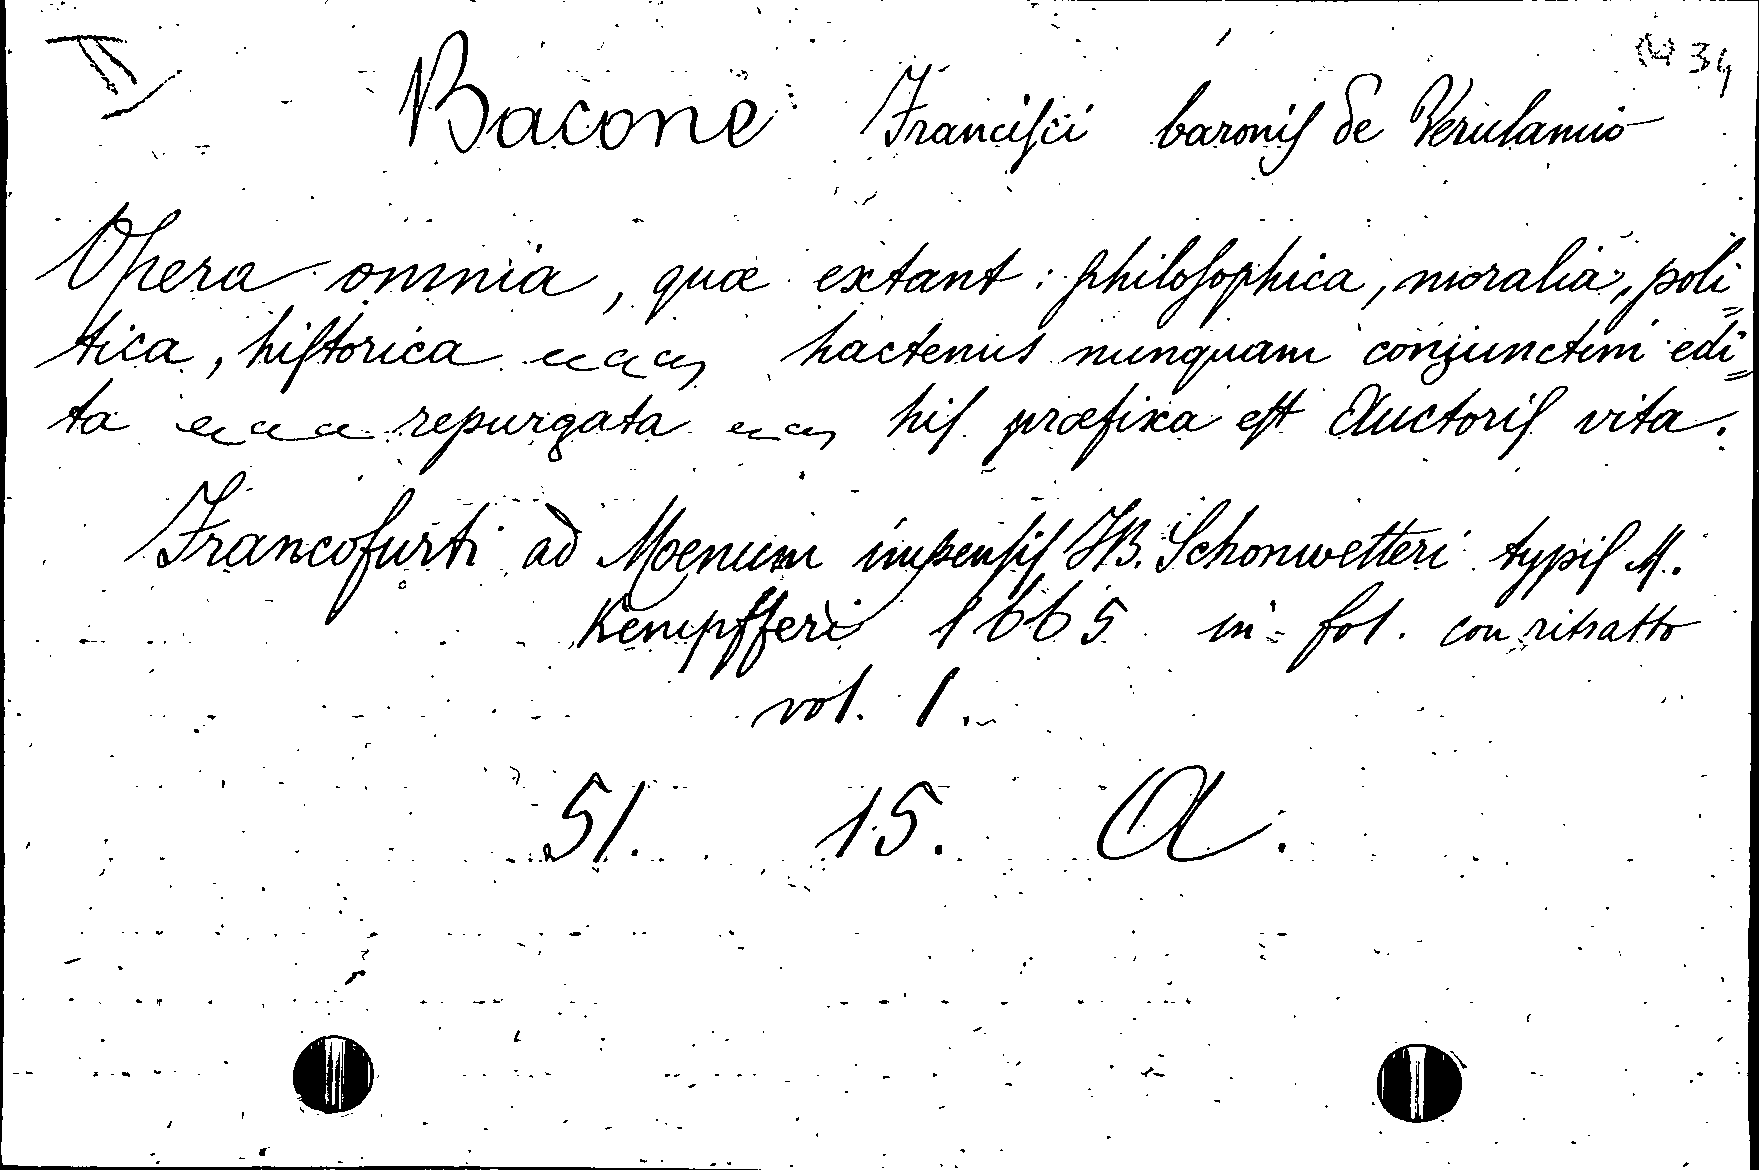 Bacone Franciſci baroniſ de Verulamio
Opera omnia, quæ extant: philoſophica, moralia, poli=
tica, hiſtorica hactenus nunquam conjunctim edi=
ta repurgata hiſ præfixa eſt Auctoriſ vita.
Francofurti ad Moenum impenſiſ JB. Schonwetteri typiſ M.
Kempfferi 1665 in=fol. con ritratto
vol. 1.
51. 15. A.